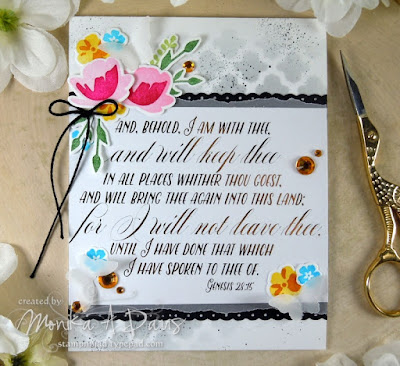 AND, BEHOLD, I AM WITH THEE,
and will keep thee
IN ALL PLACES WHITHER THOU GOEST,
AND WILL BRING THEE AGAIN INTO THIS LAND;
for I will not leave thee,
UNTIL I HAVE DONE THAT WHICH
I HAVE SPOKEN TO THEE OF.
GENESIS 28:15
created by
Monika A Davis